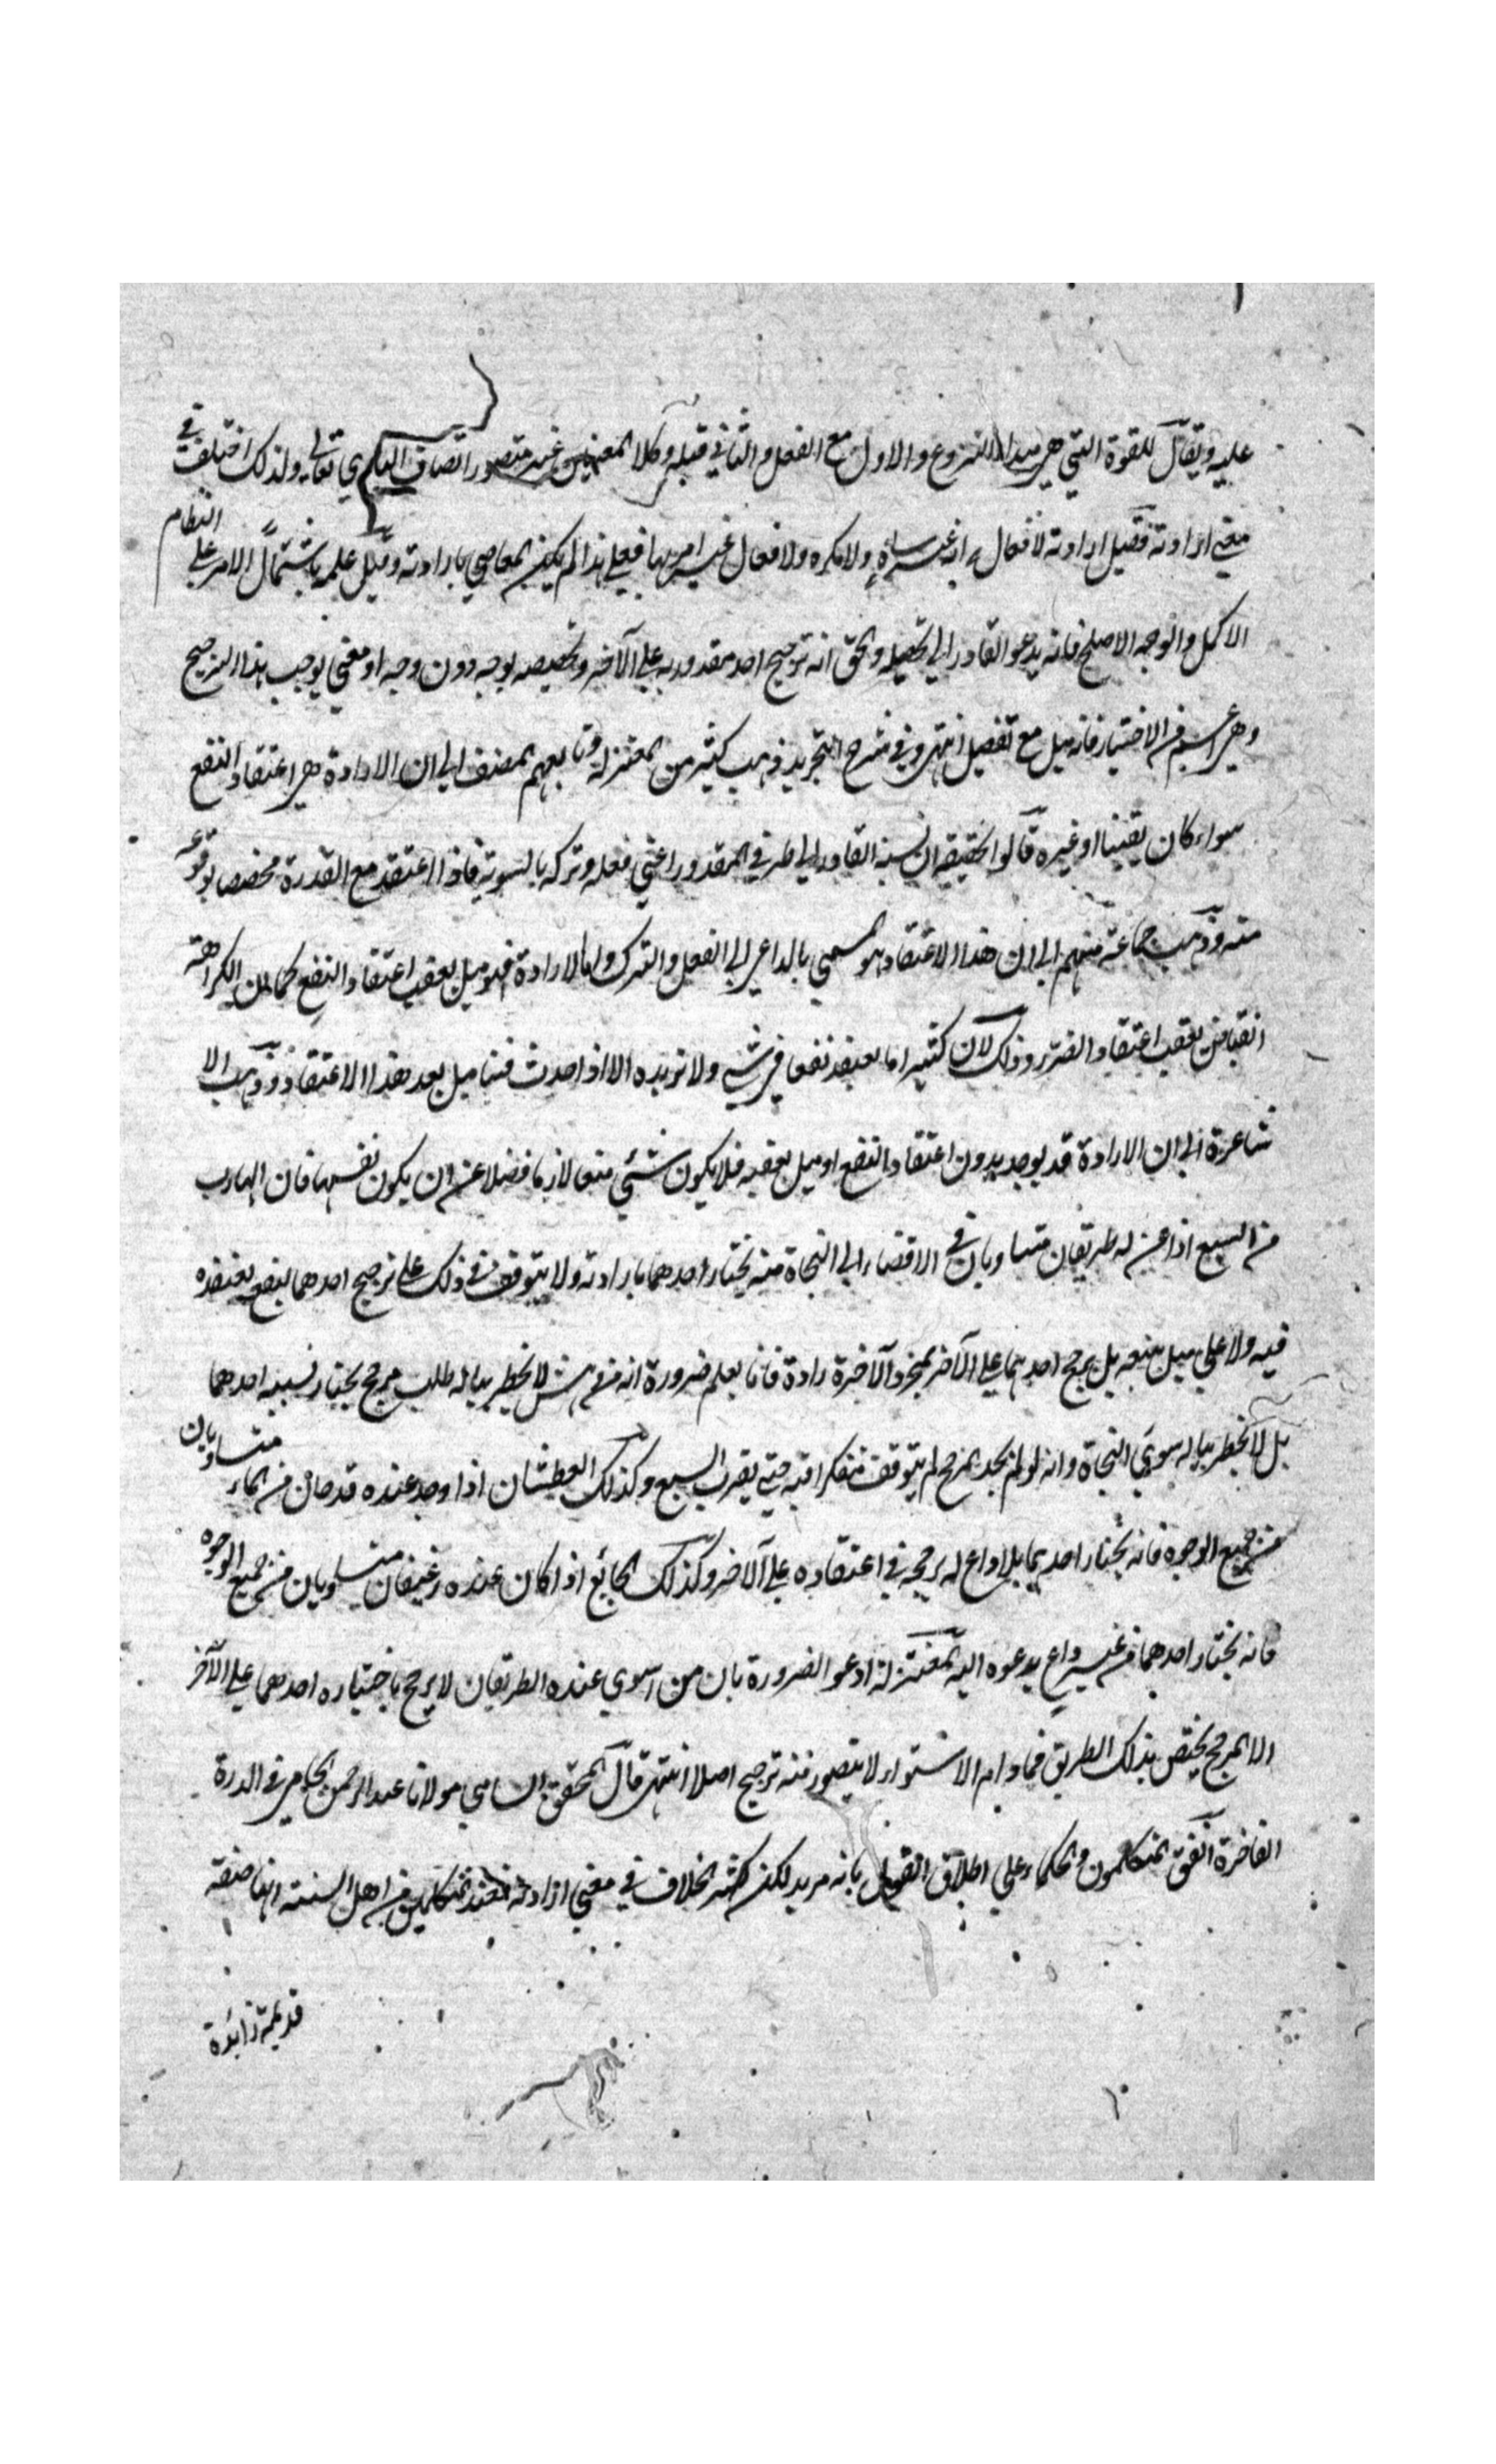 عليه ويقال للقوة التي هي مبدا النزوع والاول مع الفعل والثاني قبله وكلا المعنيين غير متصور اتصاف الباري تعالى به ولذلك اختلف في
معنى ارادته فقيل ارادته لافعاله انه غير ساه ولا مكره ولافعال غيره امره بها فعلى هذا لم يكن المعاصي بارادته وقيل علمه باشتمال الامر على النظام
الاكمل والوجه الاصلح فانه يدعو القادر الى تحصيله والحق انه ترجيح احد مقدوريه على الآخر وتخصيصه بوجه دون وجه او معنى يوجب هذا الترجيح
وهي اعم من الاختيار فانه ميل مع تفضيل انتهى وفي شرح التجريد ذهب كثير من المعتزلة وتابعهم المصنف الى ان الارادة هي اعتقاد النفع
سواء كان يقينيا او غيره قالوا الحقيقة ان نسبة القادر الى طرفي المقدور اعني فعله وتركه بالسوية فاذا اعتقد مع القدرة مخصصا بوقوعه
منه وذهب جماعة منهم الى ان هذا الاعتقاد هو المسمى بالداعي الى الفعل والترك واما الارادة فهو ميل يعقب اعتقاد النفع كما ان الكراهة
انقباض يعقب اعتقاد الضرر وذلك لان كثيرا ما يعتقد نفعا في شيء ولا نريده الا اذا حدث فينا ميل بعد هذا الاعتقاد وذهب الا
شاعرة الى ان الارادة قد يوجد بدون اعتقاد النفع او ميل يعقبه فلا يكون شئي منهما لازما فضلا عن ان يكون نفسها فان الهارب
من السبع اذا عن له طريقان متساويان في الافضاء الى النجاة منه يختار احدهما بارادته ولا يتوقف في ذلك على ترجيح احدهما لنفع يعتقده
فيه ولا على ميل يتبعه بل يرجح احدهما على الآخر بمجرد الارادة فانا نعلم ضرورة انه من دهش لا يخطر بباله طلب مرجح يختار بسببه احدهما
بل لا يخطر بباله سوى النجاة وانه لو لم يجد المرجح لم يتوقف متفكرا فيه حتى يقرب السبع وكذلك العطشان اذا وجد عنده قدحان من الماء متساويان
من جميع الوجوه فانه يختار احدهما بلا داع له يرجحه في اعتقاده على الآخر وكذلك الجائع اذا كان عنده رغيفان متساويان من جميع الوجوه
فانه يختار احدهما من غير داع يدعوه اليه المعتزلة ادعوا الضرورة بان من استوى عنده الطريقان لا يرجح باختياره احدهما على الآخر
الا لمرجح يختص بذلك الطريق فما دام الاستواء لا يتصور منه ترجيح اصلا انتهى قال المحقق السامي مولانا عبد الرحمن الجامي في الدرة
الفاخرة اتفق المتكلمون والحكماء على اطلاق القول بانه مريد لكن كثر الخلاف في معنى ارادته فعند المتكلمين من اهل السنة انها صفة
قديمة زائدة